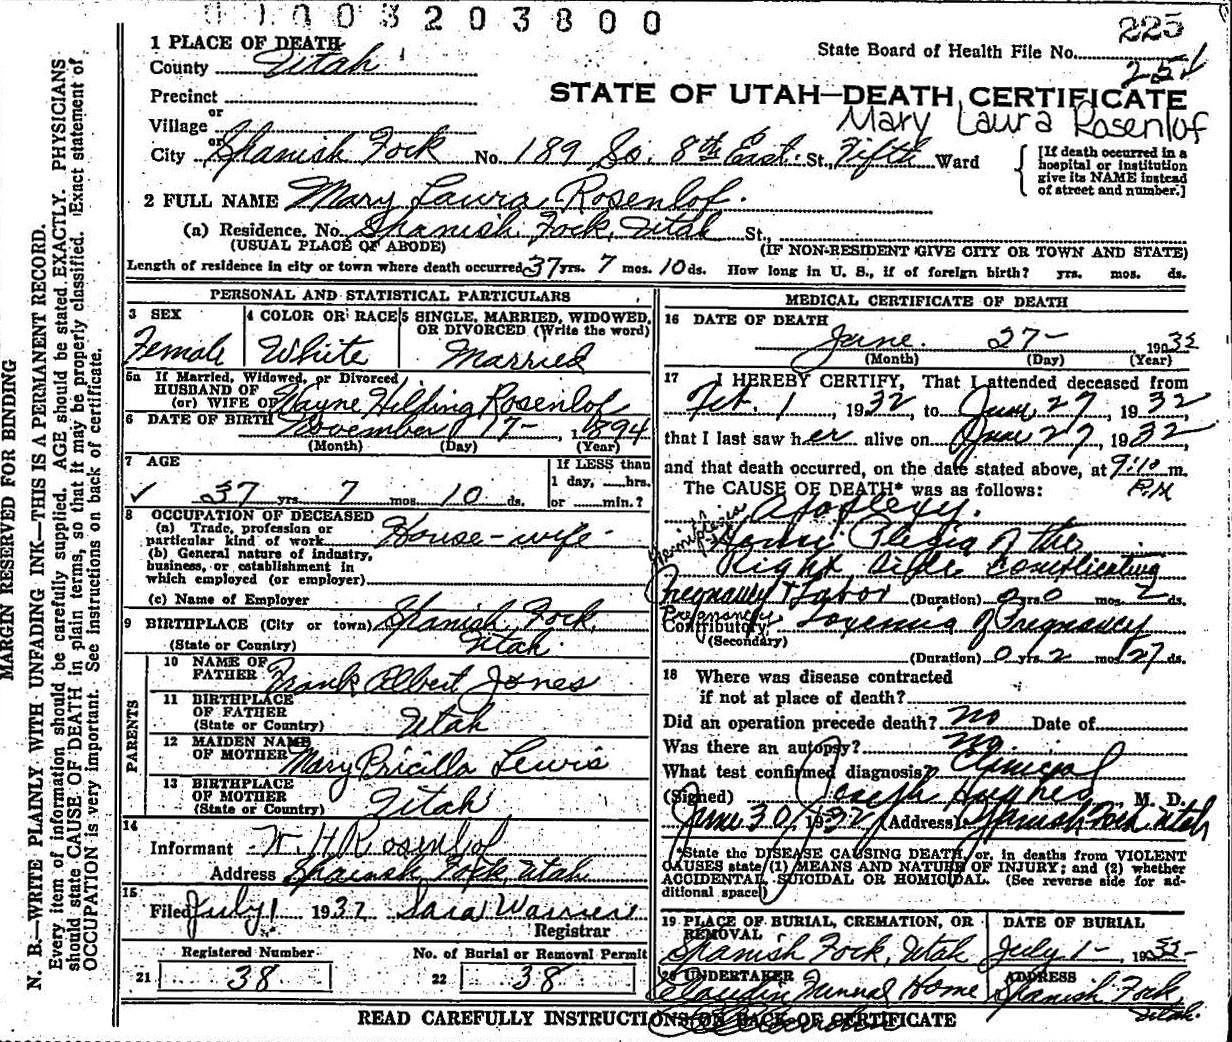 003203800
225
1 PLACE OF DEATH
State Board of Health File No.
251
County Utah
STATE OF UTAH—DEATH CERTIFICATE
Precinct
or
Village
Mary Laura Rosenlof
or
City Spanish Fork No. 189 So. 8th East St., Fifth Ward
[If death occurred in a hospital or institution give its NAME instead of street and number.]
2 FULL NAME Mary Laura Rosenlof.
(a) Residence. No. Spanish Fork, Utah St.,
(USUAL PLACE OF ABODE) (IF NON-RESIDENT GIVE CITY OR TOWN AND STATE)
Length of residence in city or town where death occurred 37 yrs. 7 mos. 10 ds. How long in U. S., if of foreign birth? yrs. mos. ds.
PERSONAL AND STATISTICAL PARTICULARS
3 SEX
Female
4 COLOR OR RACE
White
5 SINGLE, MARRIED, WIDOWED, OR DIVORCED (Write the word)
Married
5a If Married, Widowed, or Divorced
HUSBAND OF
(or) WIFE OF Wayne Hilding Rosenlof
6 DATE OF BIRTH November 17-, 1894
(Month) (Day) (Year)
7 AGE
✓ 37 yrs. 7 mos. 10 ds.
If LESS than
1 day, hrs.
or min.?
8 OCCUPATION OF DECEASED
(a) Trade, profession or
particular kind of work House-wife
(b) General nature of industry,
business, or establishment in
which employed (or employer)
(c) Name of Employer
9 BIRTHPLACE (City or town) Spanish Fork,
(State or Country) Utah.
PARENTS
10 NAME OF
FATHER Frank Albert Jones
11 BIRTHPLACE
OF FATHER
(State or Country) Utah
12 MAIDEN NAME
OF MOTHER Mary Pricilla Lewis
13 BIRTHPLACE
OF MOTHER
(State or Country) Utah
14
Informant W. H Rosenlof
Address Spanish Fork, Utah
15
Filed July 1 1932 Sara Warner
Registrar
Registered Number
21 38
No. of Burial or Removal Permit
22 38
MEDICAL CERTIFICATE OF DEATH
16 DATE OF DEATH
June. 27- 1932
(Month) (Day) (Year)
17 I HEREBY CERTIFY, That I attended deceased from
Feb. 1, 1932, to June 27, 1932
that I last saw her alive on June 27, 1932
and that death occurred, on the date stated above, at 9:10 m.
P.M
The CAUSE OF DEATH* was as follows:
Apoplexy.
Hemiplegia
Plegia of the
Right side complicating
Pregnancy & Labor (Duration) 0 yrs. 0 mos. 2 ds.
Pregnancy
Contributory Toxemia of Pregnancy
(Secondary)
(Duration) 0 yrs. 2 mos. 27 ds.
18 Where was disease contracted
if not at place of death?
Did an operation precede death? no Date of
Was there an autopsy? no
What test confirmed diagnosis? Clinical
(Signed) Joseph Hughes M. D.
June 30, 1932 (Address) Spanish Fork Utah
*State the DISEASE CAUSING DEATH, or, in deaths from VIOLENT
CAUSES state (1) MEANS AND NATURE OF INJURY; and (2) whether
ACCIDENTAL, SUICIDAL OR HOMICIDAL. (See reverse side for ad-
ditional space)
19 PLACE OF BURIAL, CREMATION, OR
REMOVAL
Spanish Fork, Utah
DATE OF BURIAL
July 1- 1932-
20 UNDERTAKER
Claudin Funeral Home
ADDRESS
Spanish Fork,
Utah.
READ CAREFULLY INSTRUCTIONS ON BACK OF CERTIFICATE
MARGIN RESERVED FOR BINDING
N. B.—WRITE PLAINLY WITH UNFADING INK—THIS IS A PERMANENT RECORD.
Every item of information should be carefully supplied. AGE should be stated EXACTLY. PHYSICIANS
should state CAUSE OF DEATH in plain terms, so that it may be properly classified. Exact statement of
OCCUPATION is very important. See instructions on back of certificate.